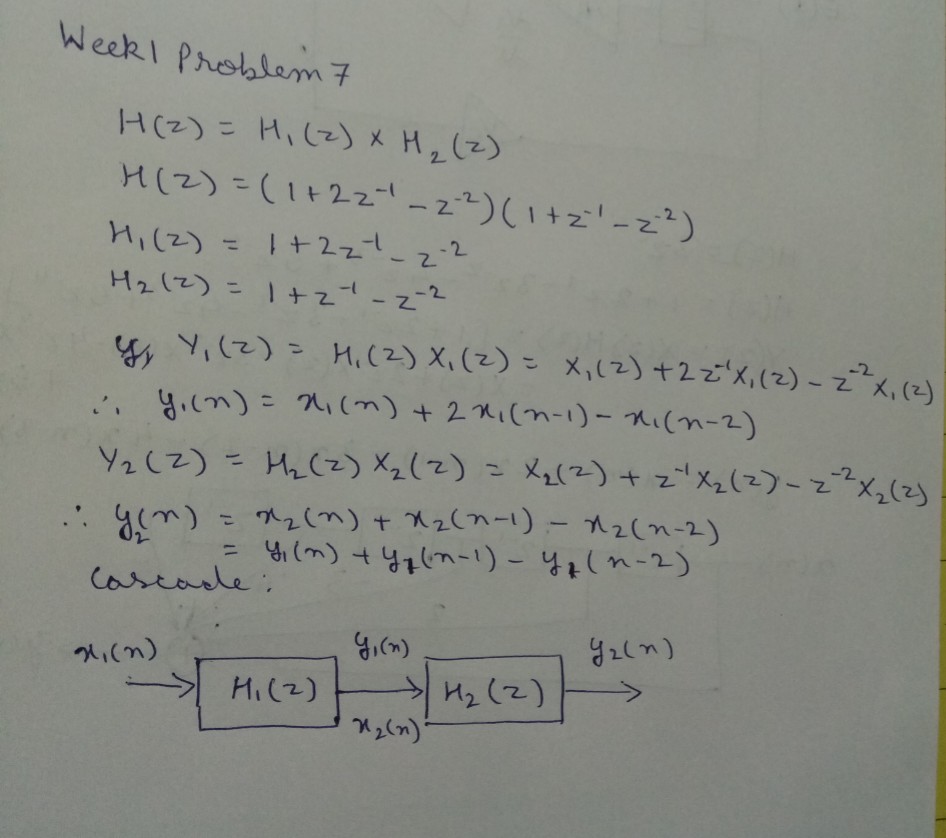 Week1 Problem 7
H(z) = H₁(z) x H₂(z)
H(z) = (1+2z⁻¹ - z⁻²)(1+z⁻¹ - z⁻²)
H₁(z) = 1+2z⁻¹ - z⁻²
H₂(z) = 1+z⁻¹ - z⁻²
Y₁(z) = H₁(z) X₁(z) = X₁(z) + 2z⁻¹X₁(z) - z⁻²X₁(z)
∴ y₁(n) = x₁(n) + 2x₁(n-1) - x₁(n-2)
Y₂(z) = H₂(z) X₂(z) = X₂(z) + z⁻¹X₂(z) - z⁻²X₂(z)
∴ y₂(n) = x₂(n) + x₂(n-1) - x₂(n-2)
= y₁(n) + y₁(n-1) - y₁(n-2)
Cascade:
x₁(n) y₁(n) y₂(n)
H₁(z) H₂(z)
x₂(n)